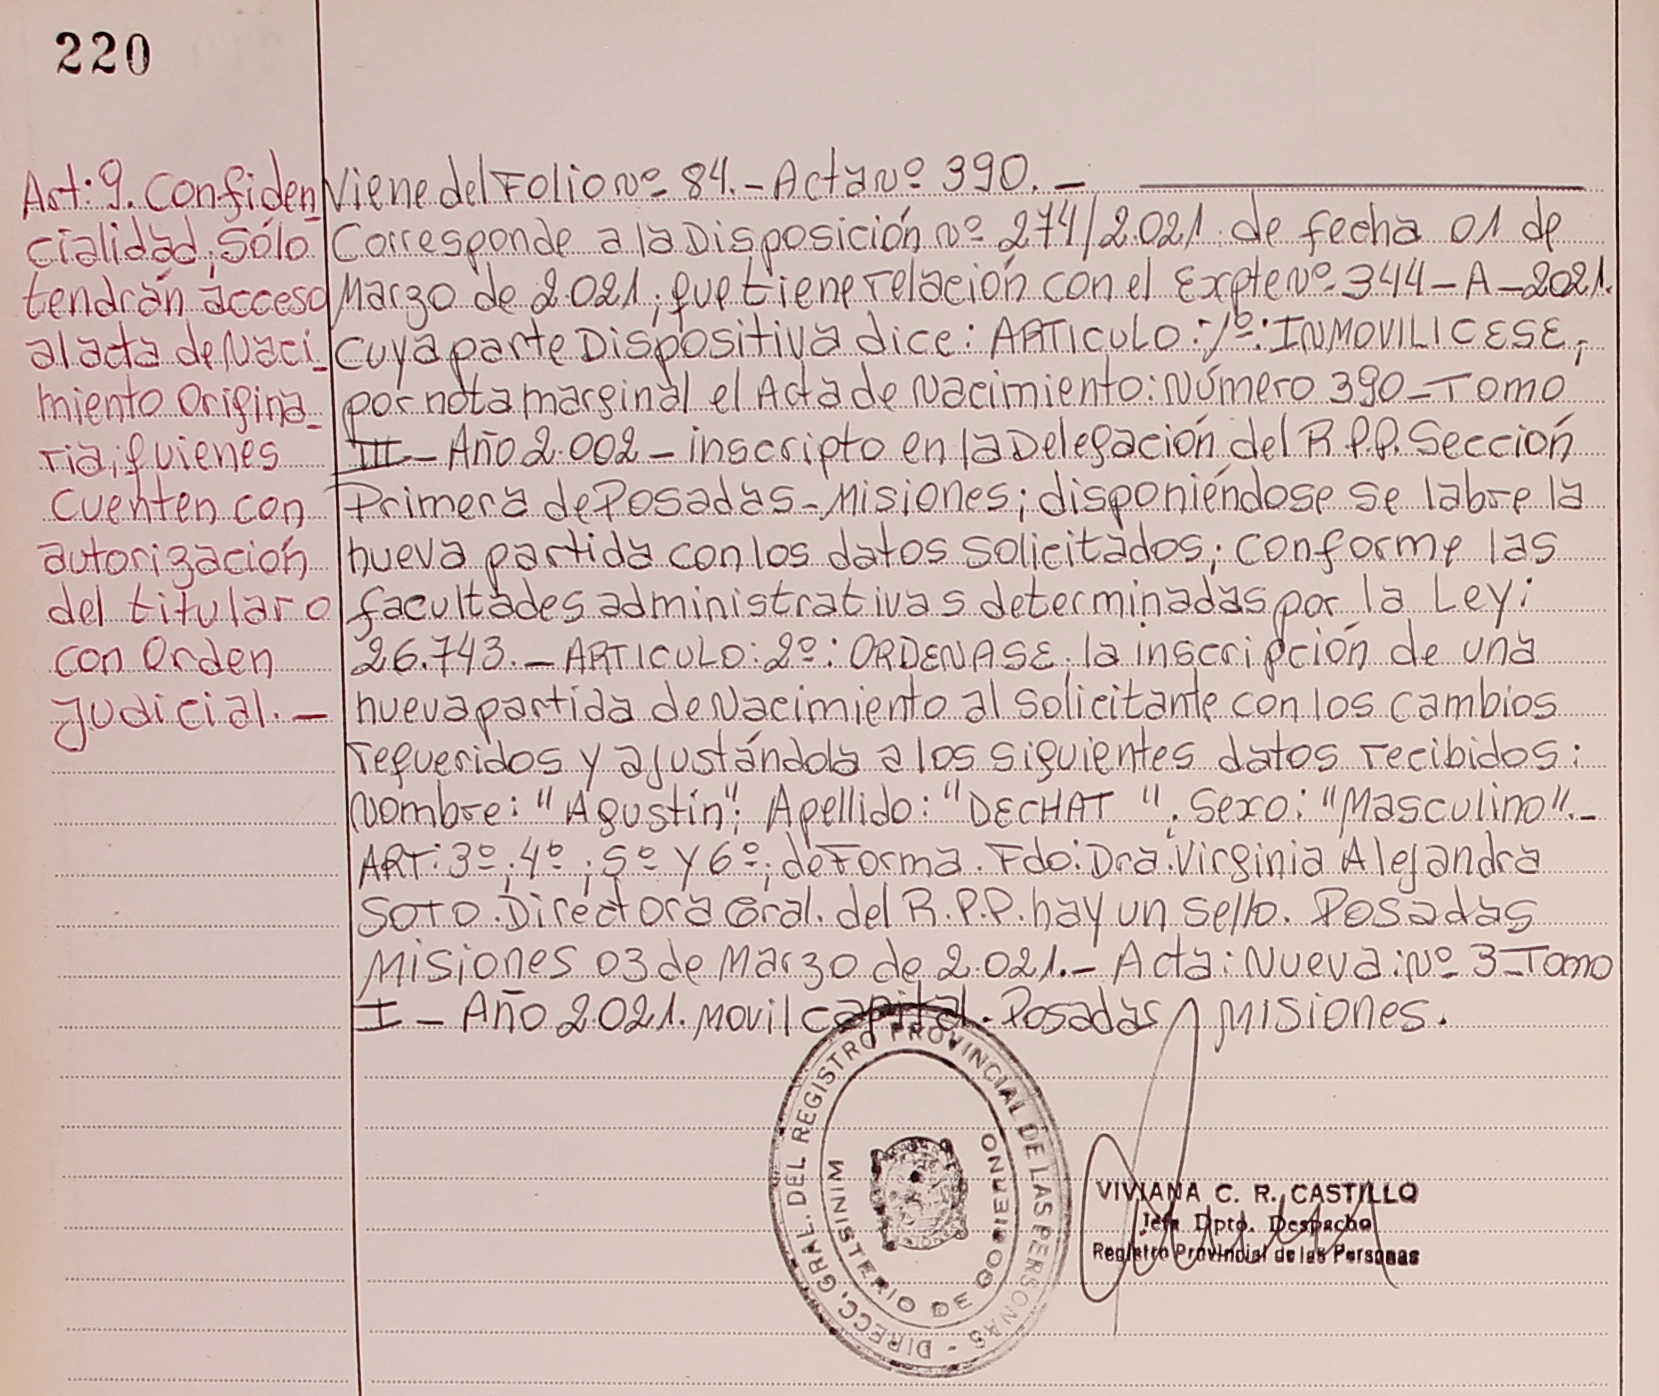 220
Art: 9. Confiden
cialidad, sólo
tendrán acceso
al acta de Naci_
miento Origina_
ria, quienes
cuenten con
autorización
del titular o
con Orden
Judicial. —
Viene del Folio Nº 84. - Acta Nº 390. —
Corresponde a la Disposición Nº 274/2.021. de fecha 01 de
Marzo de 2.021, que tiene relación con el Expte Nº 344 - A - 2021.
Cuya parte Dispositiva dice: ARTICULO: 1º: INMOVILICESE,
por nota marginal el Acta de Nacimiento: Número 390 - Tomo
III - Año 2.002 - inscripto en la Delegación del R.P.P. Sección
Primera de Posadas - Misiones; disponiéndose se labre la
nueva partida con los datos solicitados; conforme las
facultades administrativas determinadas por la Ley:
26.743. - ARTICULO: 2º: ORDENASE, la inscripción de una
nueva partida de Nacimiento al solicitante con los cambios
requeridos y ajustándola a los siguientes datos recibidos:
Nombre: "Agustín"; Apellido: "DECHAT"; Sexo: "Masculino". -
ART: 3º; 4º; 5º y 6º; de Forma. Fdo: Dra. Virginia Alejandra
SOTO. Directora Gral. del R.P.P. hay un sello. Posadas
Misiones 03 de Marzo de 2.021. - Acta: Nueva: Nº 3 - Tomo
I - Año 2021. Movil capital. Posadas Misiones.
DIRECC. GRAL. DEL REGISTRO PROVINCIAL DE LAS PERSONAS -
MINISTERIO DE GOBIERNO
VIVIANA C. R. CASTILLO
Jefa Dpto. Despacho
Registro Provincial de las Personas